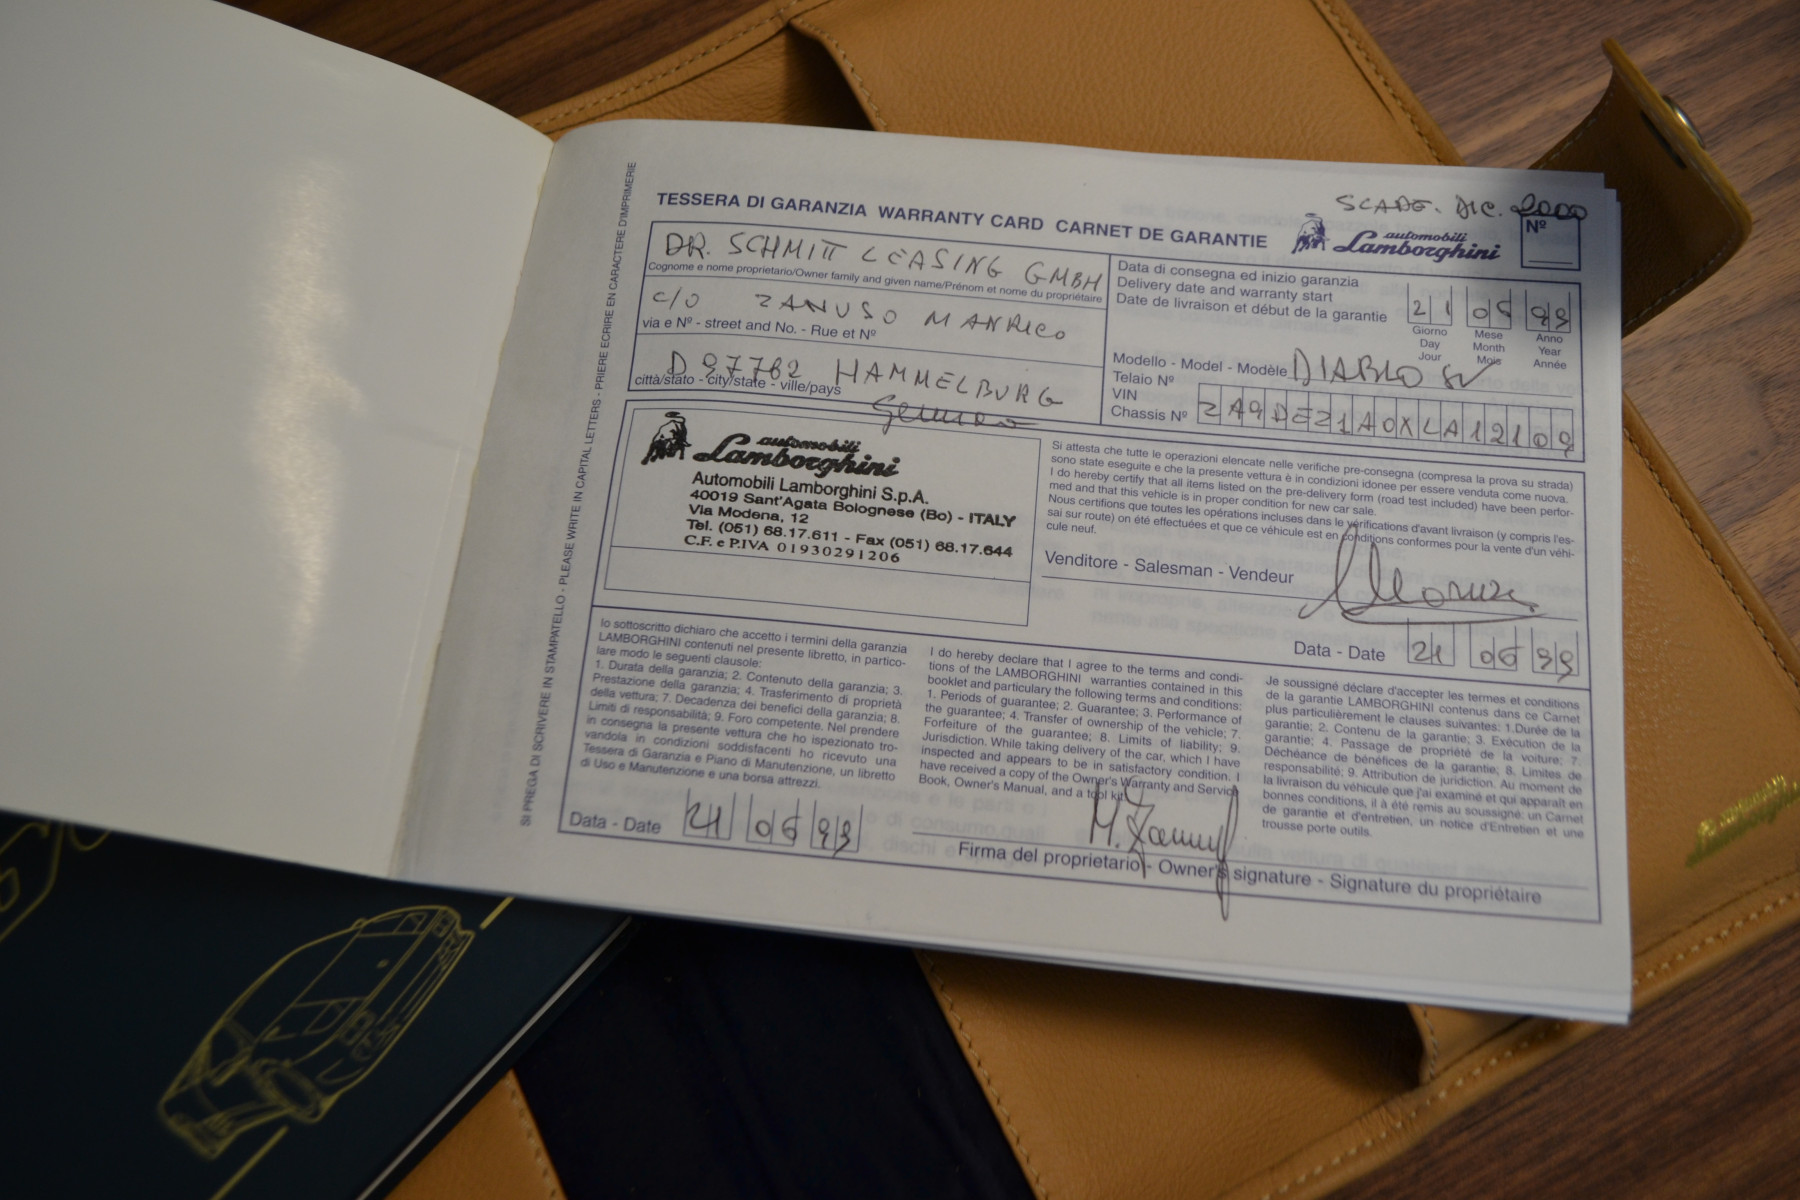 SCADE. DIC. 2000
TESSERA DI GARANZIA WARRANTY CARD CARNET DE GARANTIE
automobili
Lamborghini
Nº
DR. SCHMITT LEASING GMBH
Cognome e nome proprietario/Owner family and given name/Prénom et nome du propriétaire
c/o ZANUSO MANRICO
via e Nº - street and No. - Rue et Nº
D 97762 HAMMELBURG
città/stato - city/state - ville/pays
Data di consegna ed inizio garanzia
Delivery date and warranty start
Date de livraison et début de la garantie
21 05 99
Giorno Mese Anno
Day Month Year
Jour Mois Année
Modello - Model - Modèle DIABLO SV
Telaio Nº
VIN
Chassis Nº ZA9DE21A0XLA12109
automobili
Lamborghini
Automobili Lamborghini S.p.A.
40019 Sant'Agata Bolognese (Bo) - ITALY
Via Modena, 12
Tel. (051) 68.17.611 - Fax (051) 68.17.644
C.F. e P.IVA 01930291206
Si attesta che tutte le operazioni elencate nelle verifiche pre-consegna (compresa la prova su strada)
sono state eseguite e che la presente vettura è in condizioni idonee per essere venduta come nuova.
I do hereby certify that all items listed on the pre-delivery form (road test included) have been perfor-
med and that this vehicle is in proper condition for new car sale.
Nous certifions que toutes les opérations incluses dans le vérifications d'avant livraison (y compris l'es-
sai sur route) on été effectuées et que ce véhicule est en conditions conformes pour la vente d'un véhi-
cule neuf.
Venditore - Salesman - Vendeur
Data - Date 21 05 99
Io sottoscritto dichiaro che accetto i termini della garanzia
LAMBORGHINI contenuti nel presente libretto, in partico-
lare modo le seguenti clausole:
1. Durata della garanzia; 2. Contenuto della garanzia; 3.
Prestazione della garanzia; 4. Trasferimento di proprietà
della vettura; 7. Decadenza dei benefici della garanzia; 8.
Limiti di responsabilità; 9. Foro competente. Nel prendere
in consegna la presente vettura che ho ispezionato tro-
vandola in condizioni soddisfacenti ho ricevuto una
Tessera di Garanzia e Piano di Manutenzione, un libretto
di Uso e Manutenzione e una borsa attrezzi.
I do hereby declare that I agree to the terms and condi-
tions of the LAMBORGHINI warranties contained in this
booklet and particulary the following terms and conditions:
1. Periods of guarantee; 2. Guarantee; 3. Performance of
the guarantee; 4. Transfer of ownership of the vehicle; 7.
Forfeiture of the guarantee; 8. Limits of liability; 9.
Jurisdiction. While taking delivery of the car, which I have
inspected and appears to be in satisfactory condition. I
have received a copy of the Owner's Warranty and Service
Book, Owner's Manual, and a tool kit.
Je soussigné déclare d'accepter les termes et conditions
de la garantie LAMBORGHINI contenus dans ce Carnet
plus particulièrement le clauses suivantes: 1.Durée de la
garantie; 2. Contenu de la garantie; 3. Exécution de la
garantie; 4. Passage de propriété de la voiture; 7.
Déchéance de bénéfices de la garantie; 8. Limites de
responsabilité; 9. Attribution de juridiction. Au moment de
la livraison du véhicule que j'ai examiné et qui apparaît en
bonnes conditions, il à été remis au soussigné: un Carnet
de garantie et d'entretien, un notice d'Entretien et une
trousse porte outils.
Data - Date 21 05 99
Firma del proprietario - Owner's signature - Signature du propriétaire
SI PREGA DI SCRIVERE IN STAMPATELLO - PLEASE WRITE IN CAPITAL LETTERS - PRIERE ECRIRE EN CARACTERE D'IMPRIMERIE